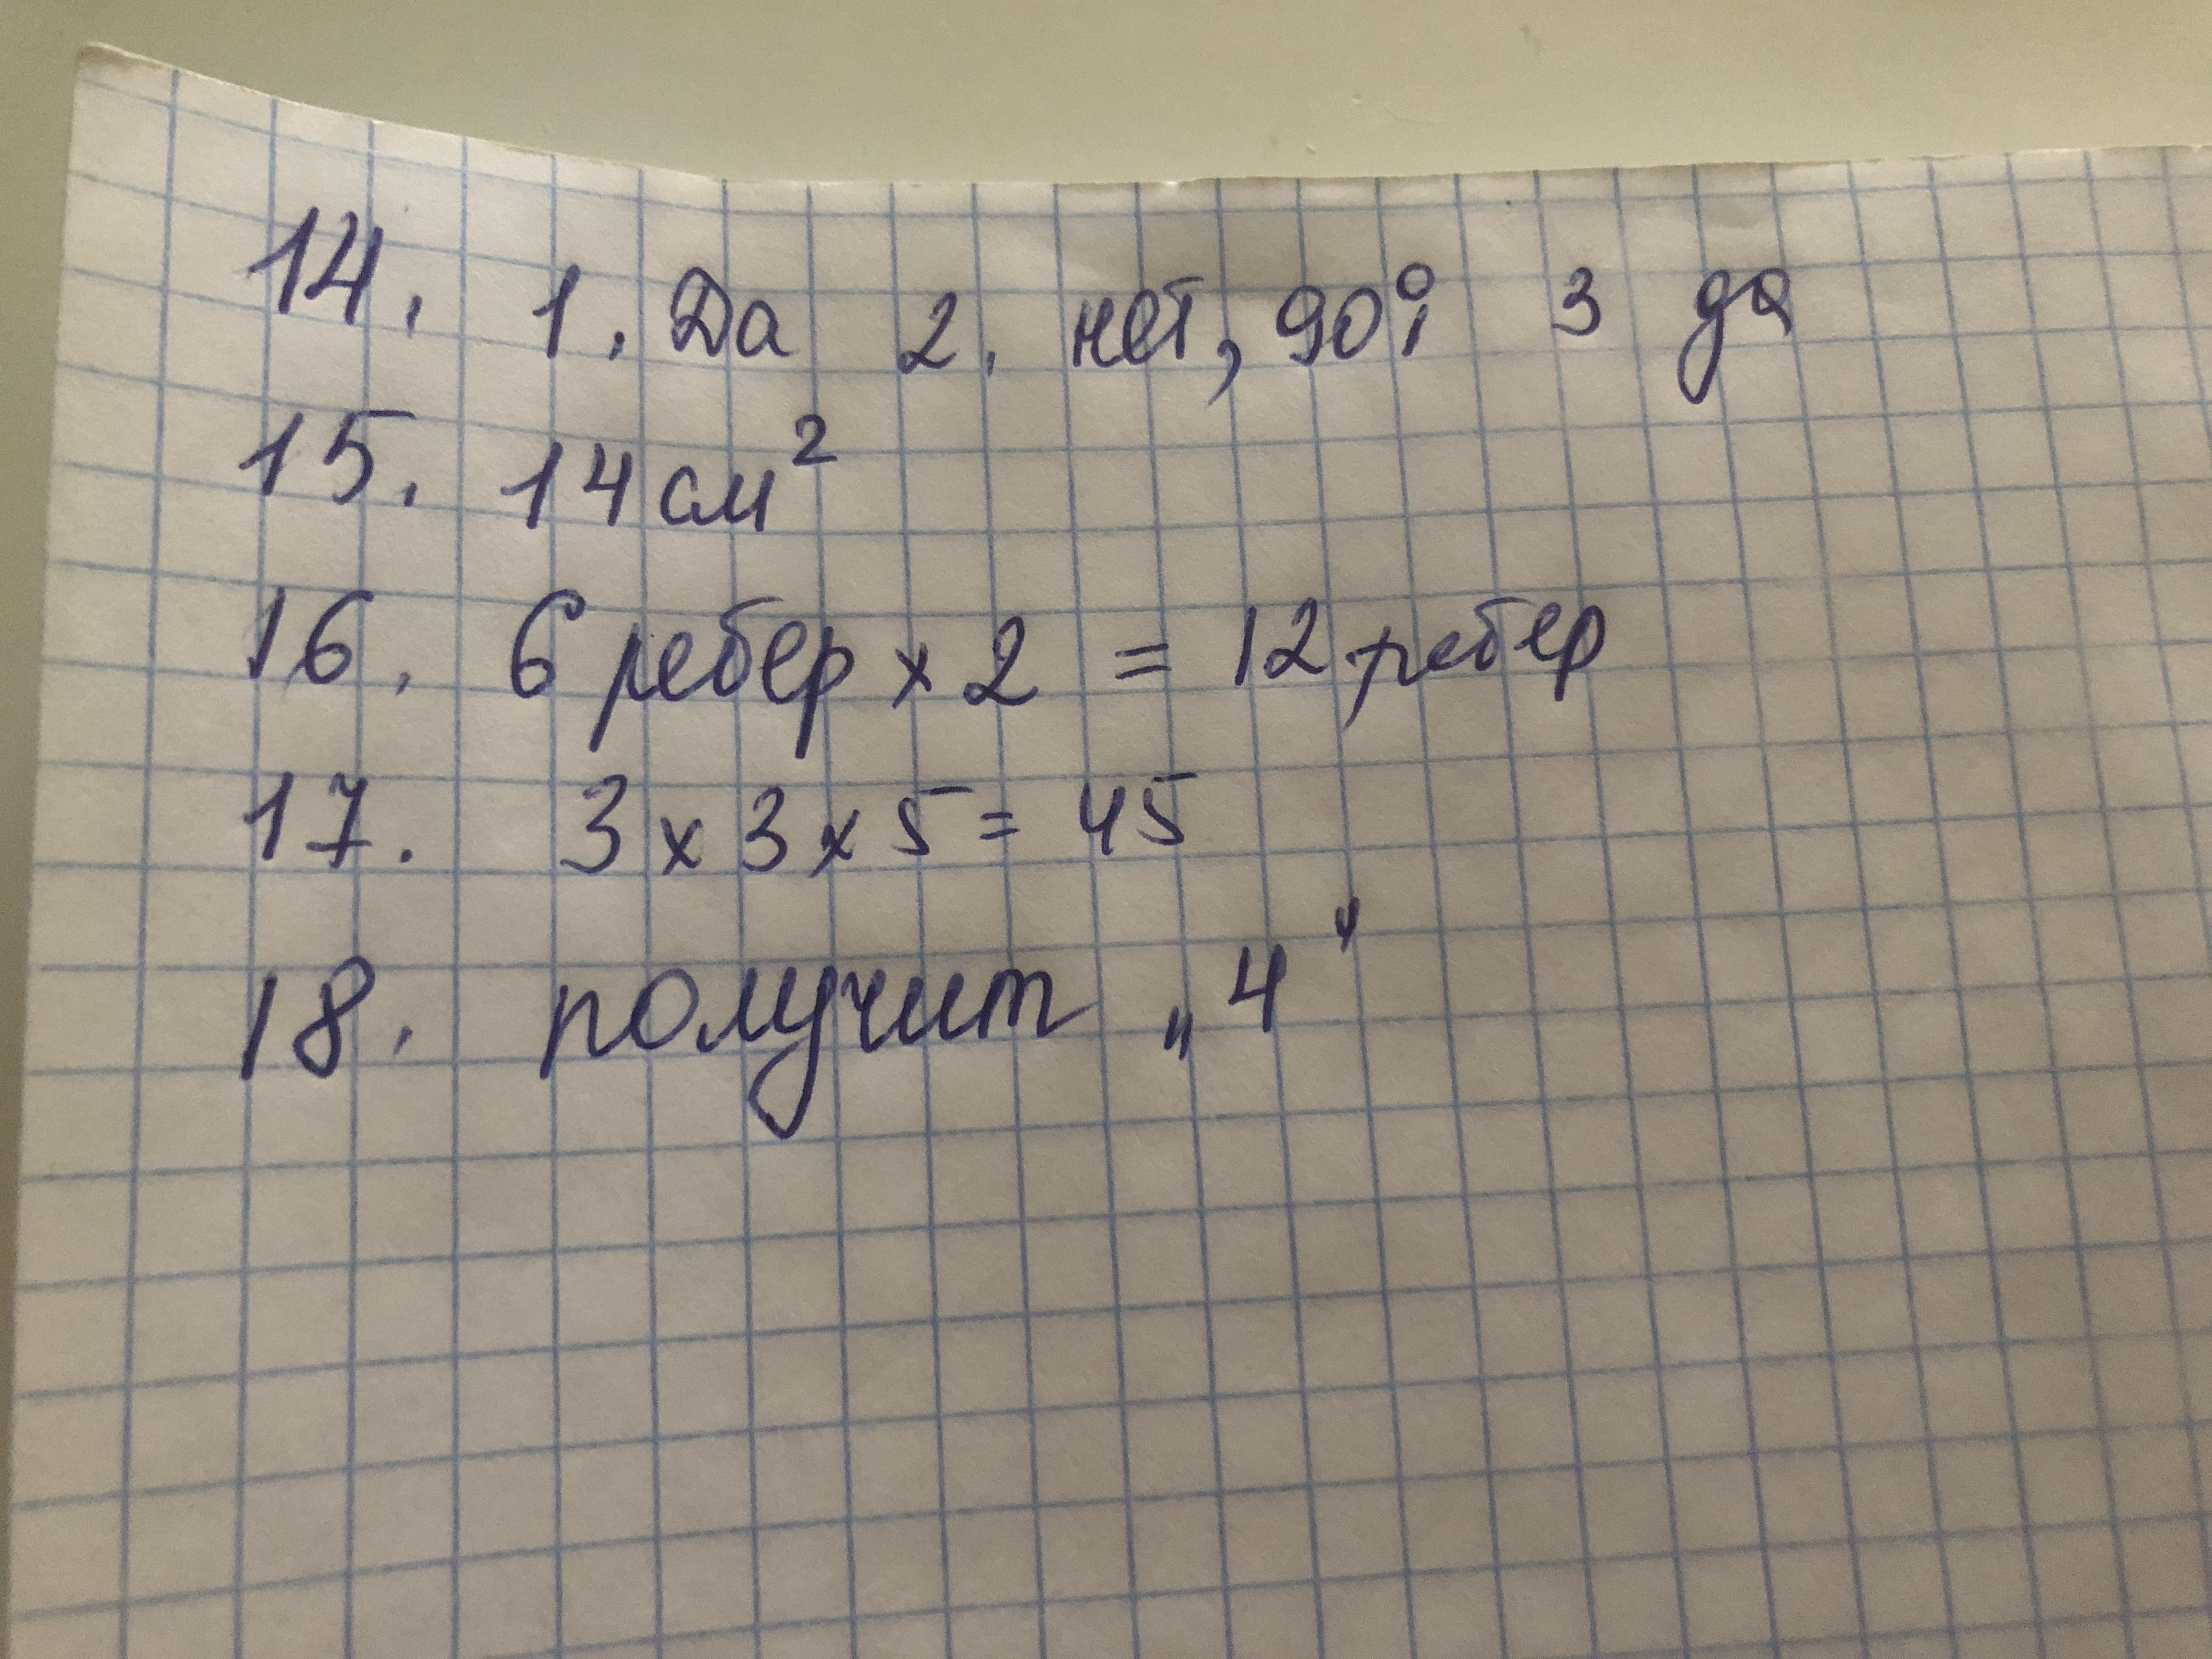 14. 1. Да 2. нет, 90°; 3 да
15. 14 см²
16. 6 ребер х 2 = 12 ребер
17. 3 х 3 х 5 = 45
18. получит „4"